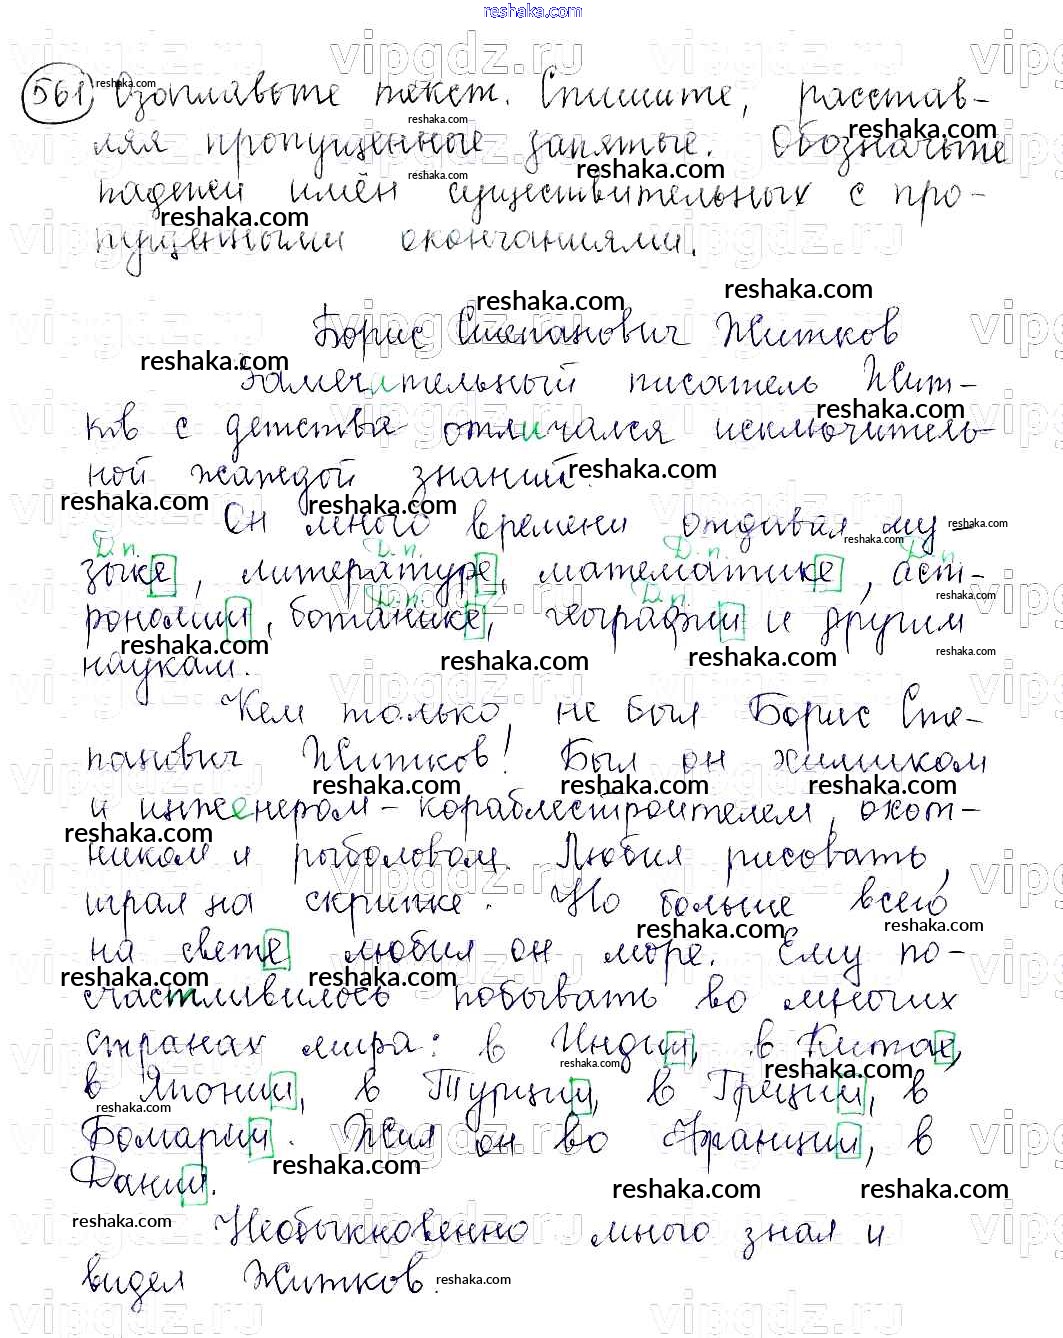 reshaka.com
561 Озаглавьте текст. Спишите, расстав-
ляя пропущенные запятые. Обозначьте
падежи имён существительных с про-
пущенными окончаниями.
Борис Степанович Житков
Замечательный писатель Жит-
ков с детства отличался исключитель-
ной жаждой знаний.
Он много времени отдавал му-
Д.п. Д.п. Д.п. Д.п.
зыке, литературе, математике, аст-
Д.п. Д.п.
рономии, ботанике, географии и другим
наукам.
Кем только не был Борис Сте-
панович Житков! Был он химиком
и инженером-кораблестроителем, охот-
ником и рыболовом. Любил рисовать,
играл на скрипке. Но больше всего
на свете любил он море. Ему по-
счастливилось побывать во многих
странах мира: в Индии, в Китае,
в Японии, в Турции, в Греции, в
Бомарии. Жил он во Франции, в
Дании.
Необыкновенно много знал и
видел Житков.